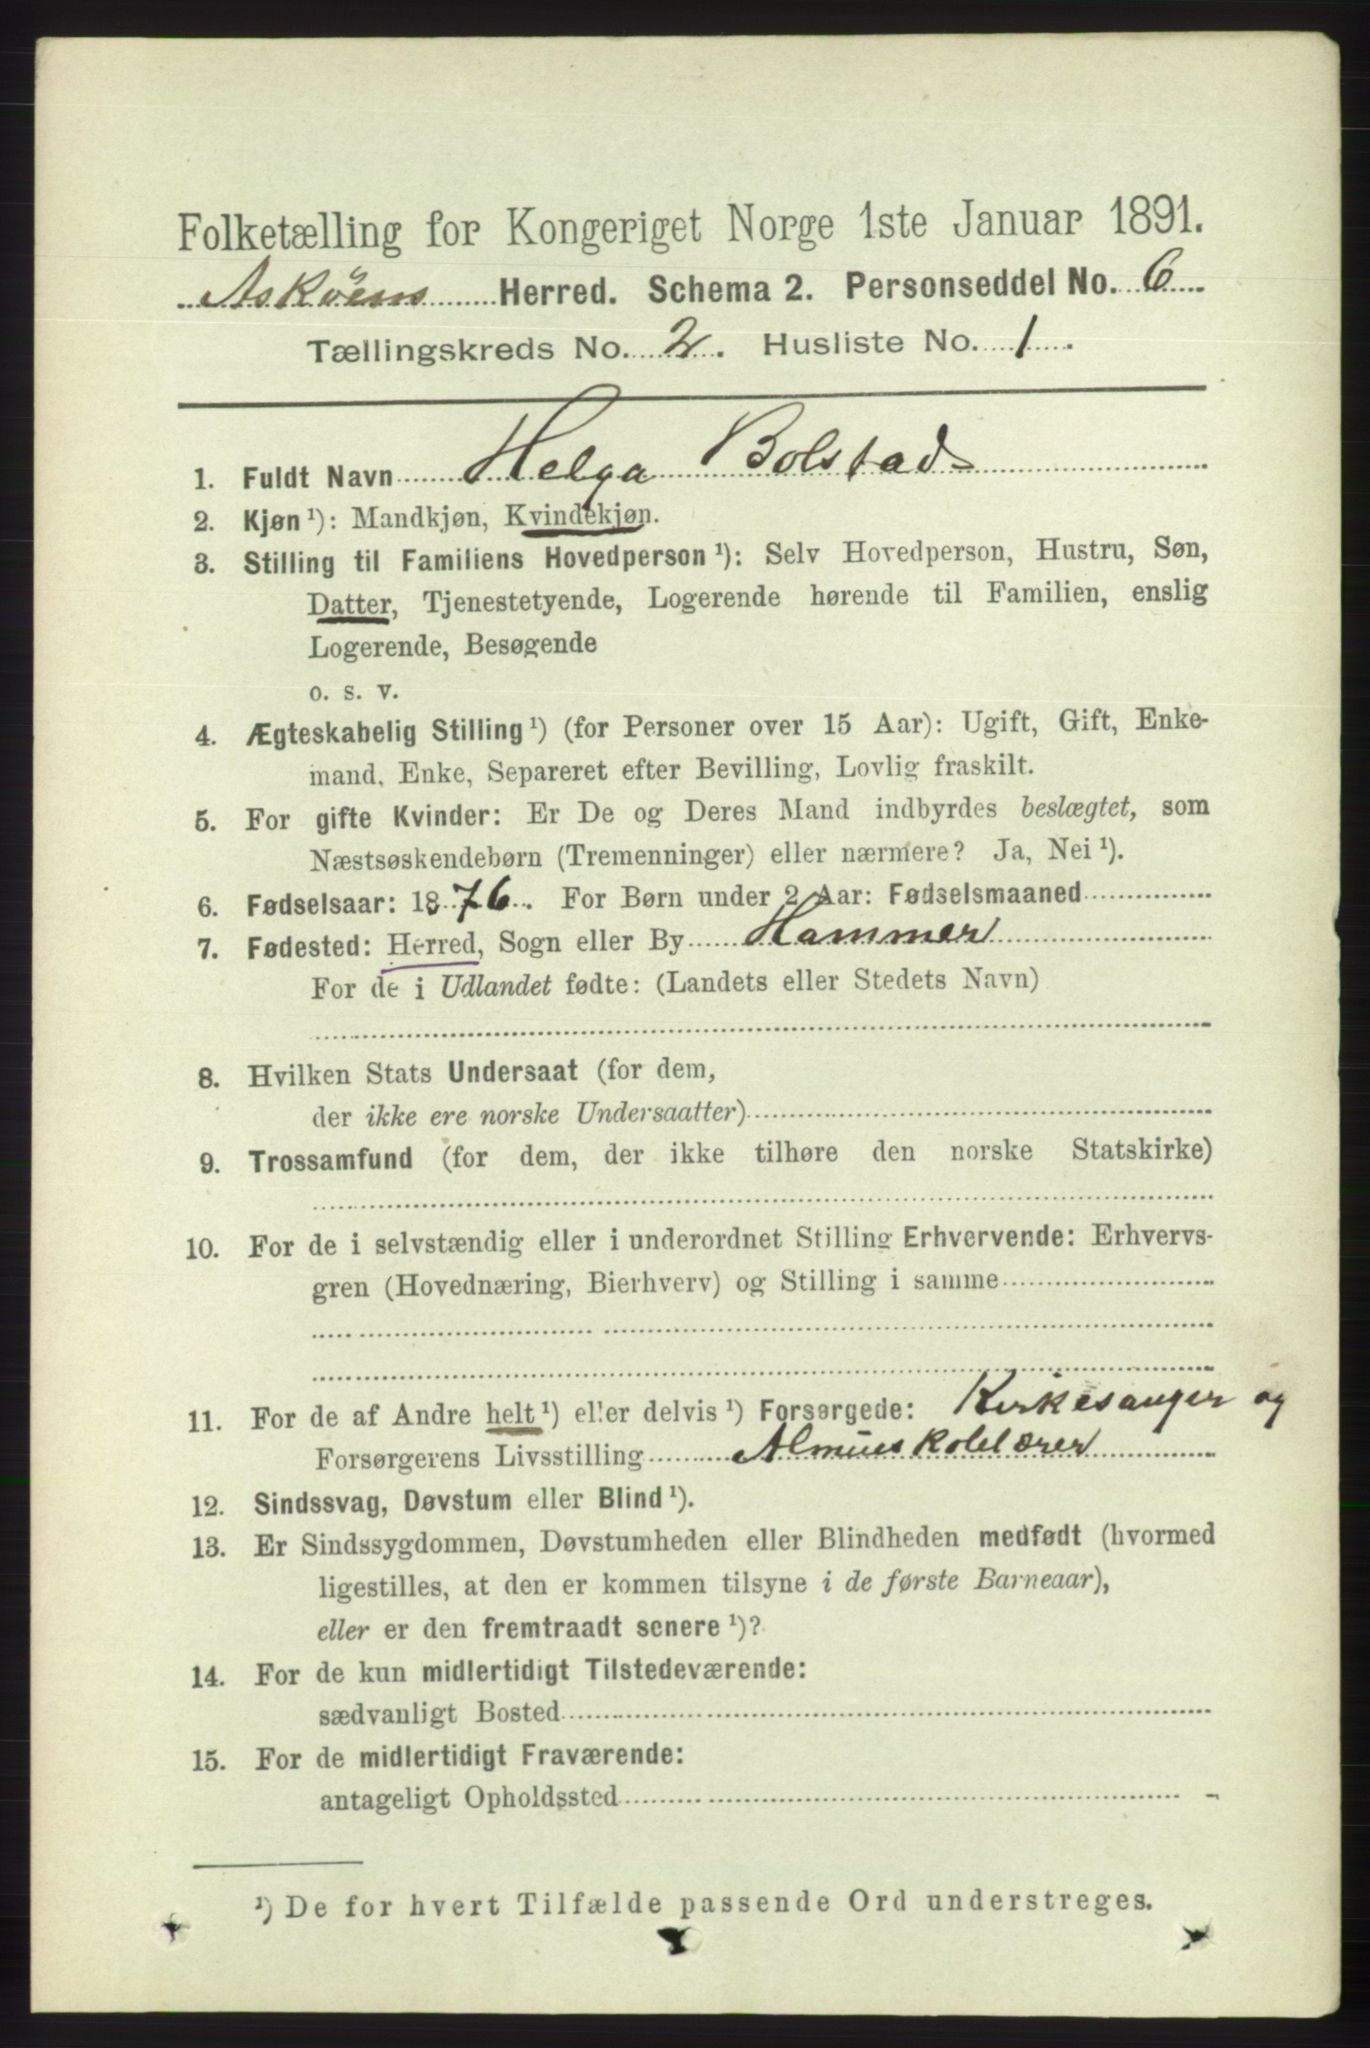 Folketælling for Kongeriget Norge 1ste Januar 1891.
Askøens Herred. Schema 2. Personseddel No. 6
Tællingskreds No. 2. Husliste No. 1.
1. Fuldt Navn Helga Bolstad
2. Kjøn¹): Mandkjøn, Kvindekjøn.
3. Stilling til Familiens Hovedperson¹): Selv Hovedperson, Hustru, Søn,
Datter, Tjenestetyende, Logerende hørende til Familien, enslig
Logerende, Besøgende
o. s. v.
4. Ægteskabelig Stilling¹) (for Personer over 15 Aar): Ugift, Gift, Enke-
mand, Enke, Separeret efter Bevilling, Lovlig fraskilt.
5. For gifte Kvinder: Er De og Deres Mand indbyrdes beslægtet, som
Næstsøskendebørn (Tremenninger) eller nærmere? Ja, Nei¹).
6. Fødselsaar: 1876. For Børn under 2 Aar: Fødselsmaaned
7. Fødested: Herred, Sogn eller By Hammer
For de i Udlandet fødte: (Landets eller Stedets Navn)
8. Hvilken Stats Undersaat (for dem,
der ikke ere norske Undersaatter)
9. Trossamfund (for dem, der ikke tilhøre den norske Statskirke)
10. For de i selvstændig eller i underordnet Stilling Erhvervende: Erhvervs-
gren (Hovednæring, Bierhverv) og Stilling i samme
11. For de af Andre helt¹) eller delvis¹) Forsørgede: Kirkesanger og
Forsørgerens Livsstilling Almueskolelærer
12. Sindssvag, Døvstum eller Blind¹).
13. Er Sindssygdommen, Døvstumheden eller Blindheden medfødt (hvormed
ligestilles, at den er kommen tilsyne i de første Barneaar),
eller er den fremtraadt senere¹)?
14. For de kun midlertidigt Tilstedeværende:
sædvanligt Bosted
15. For de midlertidigt Fraværende:
antageligt Opholdssted
¹) De for hvert Tilfælde passende Ord understreges.